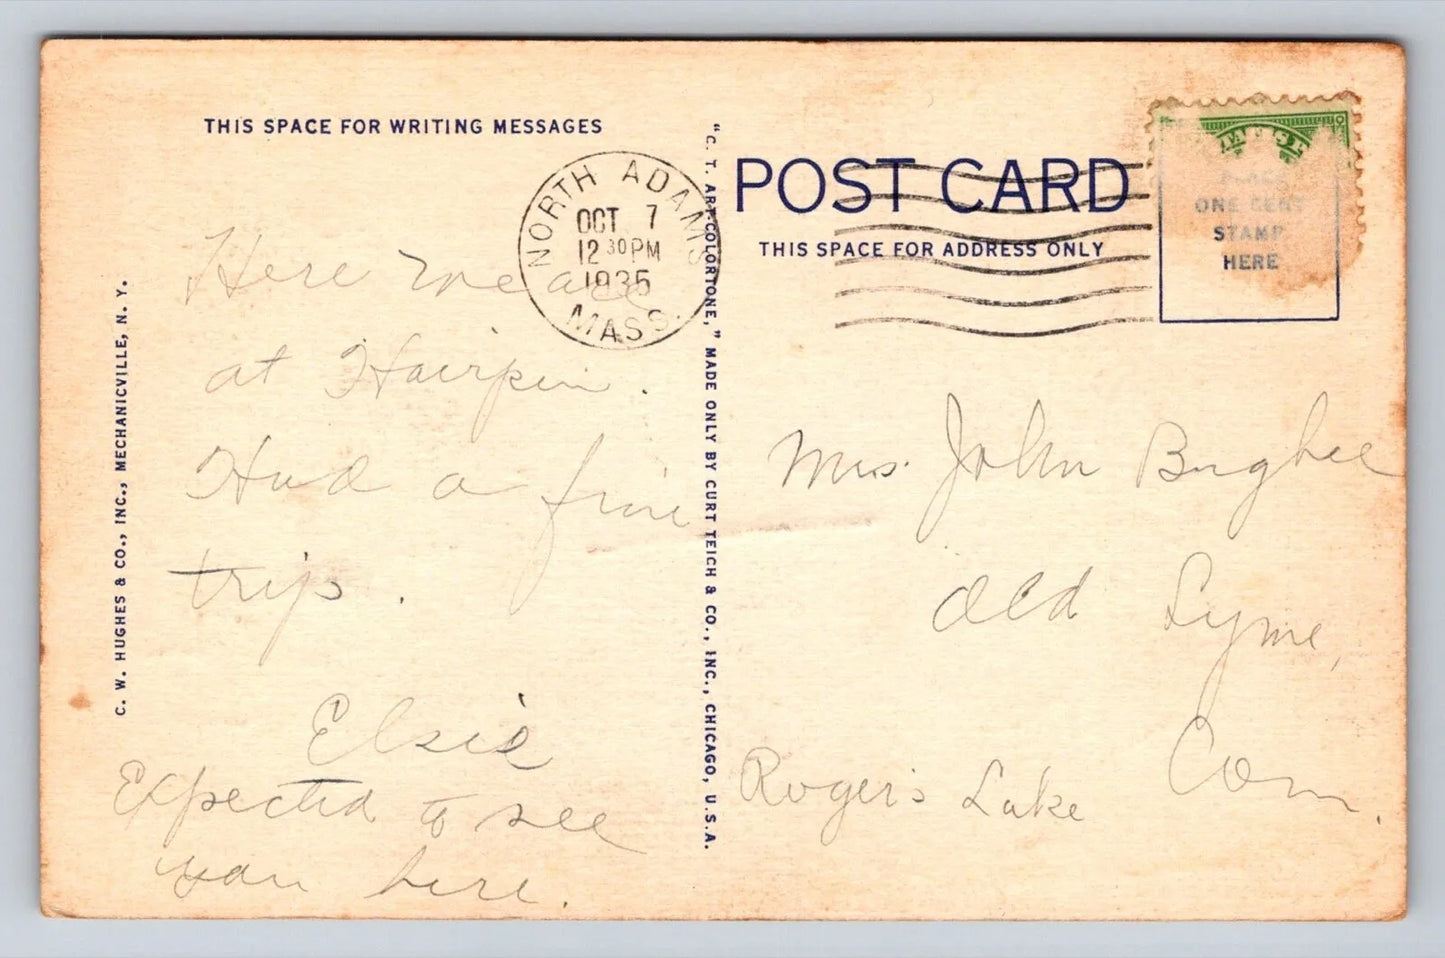 THIS SPACE FOR WRITING MESSAGES
NORTH ADAMS
OCT 7
12 30 PM
1935
MASS.
Here we are
at Hairpin.
Had a fine
trip.
Elsie
Expected to see
you here.
C. W. HUGHES & CO., INC., MECHANICVILLE, N. Y.
"C. T. ART-COLORTONE," MADE ONLY BY CURT TEICH & CO., INC., CHICAGO, U.S.A.
POST CARD
THIS SPACE FOR ADDRESS ONLY
PLACE
ONE CENT
STAMP
HERE
Mrs. John Bugbee
Old Lyme,
Conn.
Roger's Lake